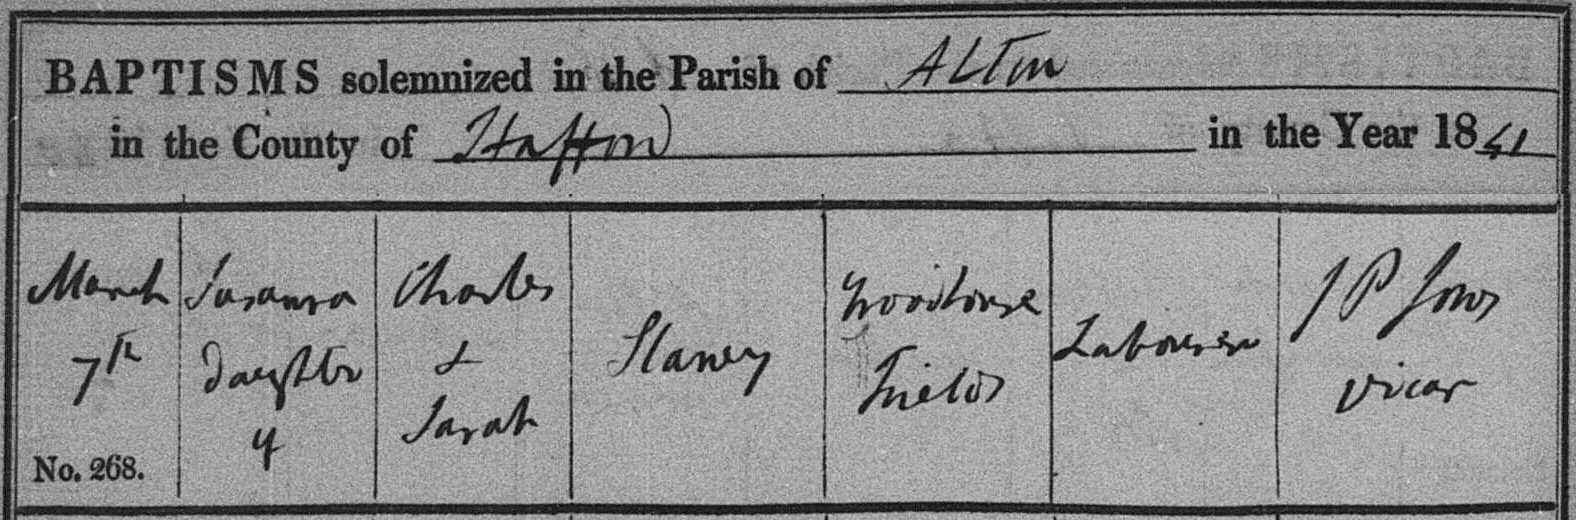 BAPTISMS solemnized in the Parish of ALTon
in the County of Stafford in the Year 1841
March
7th
No. 268.
Susanna
daughter
of
Charles
+
Sarah
Slaney
Woodhouse
Fields
Labourer
J P Jones
Vicar